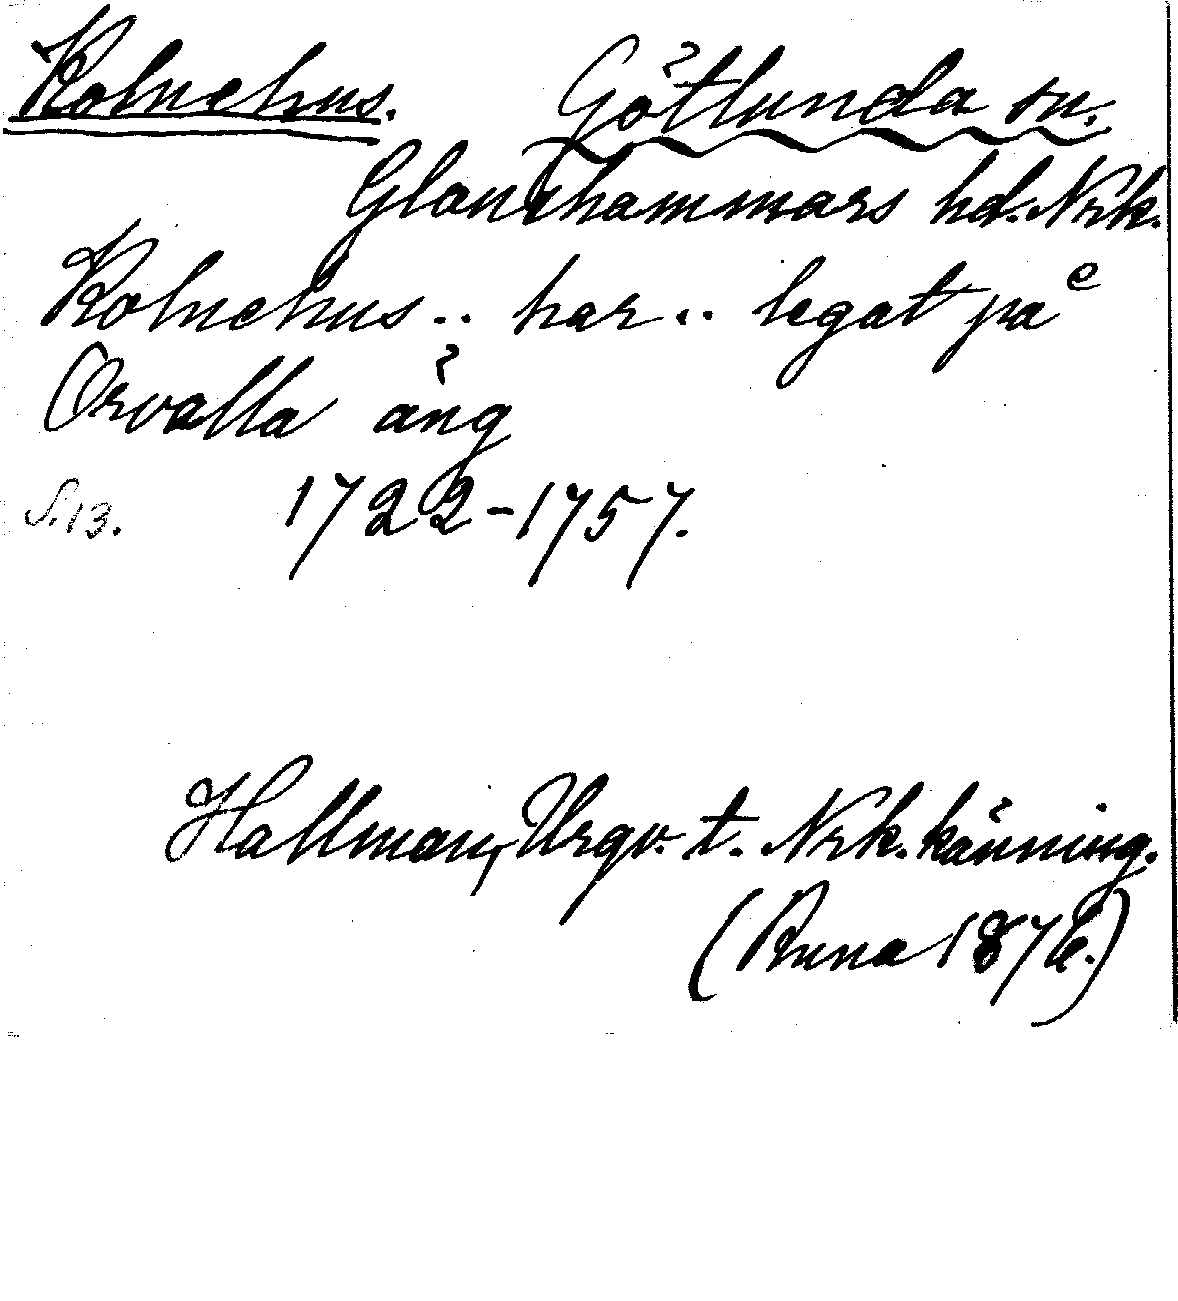 Kolnehus. Götlunda sn.
Glanshammars hd. Nrk.
Kolnehus .. har .. legat på
Orvalla äng
S. 13. 1722-1757.
Hallman, Urgv. t. Nrk. känning.
(Runa 1876.)